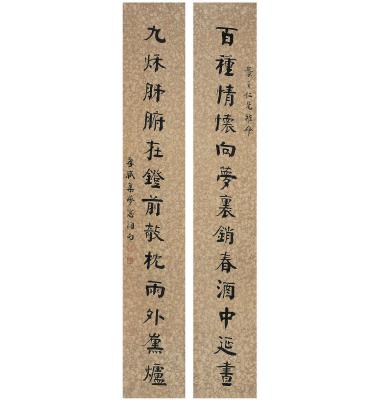 百種情懷向夢裏銷春酒中延晝
九秌肝腑在鐙前敲枕雨外熏爐